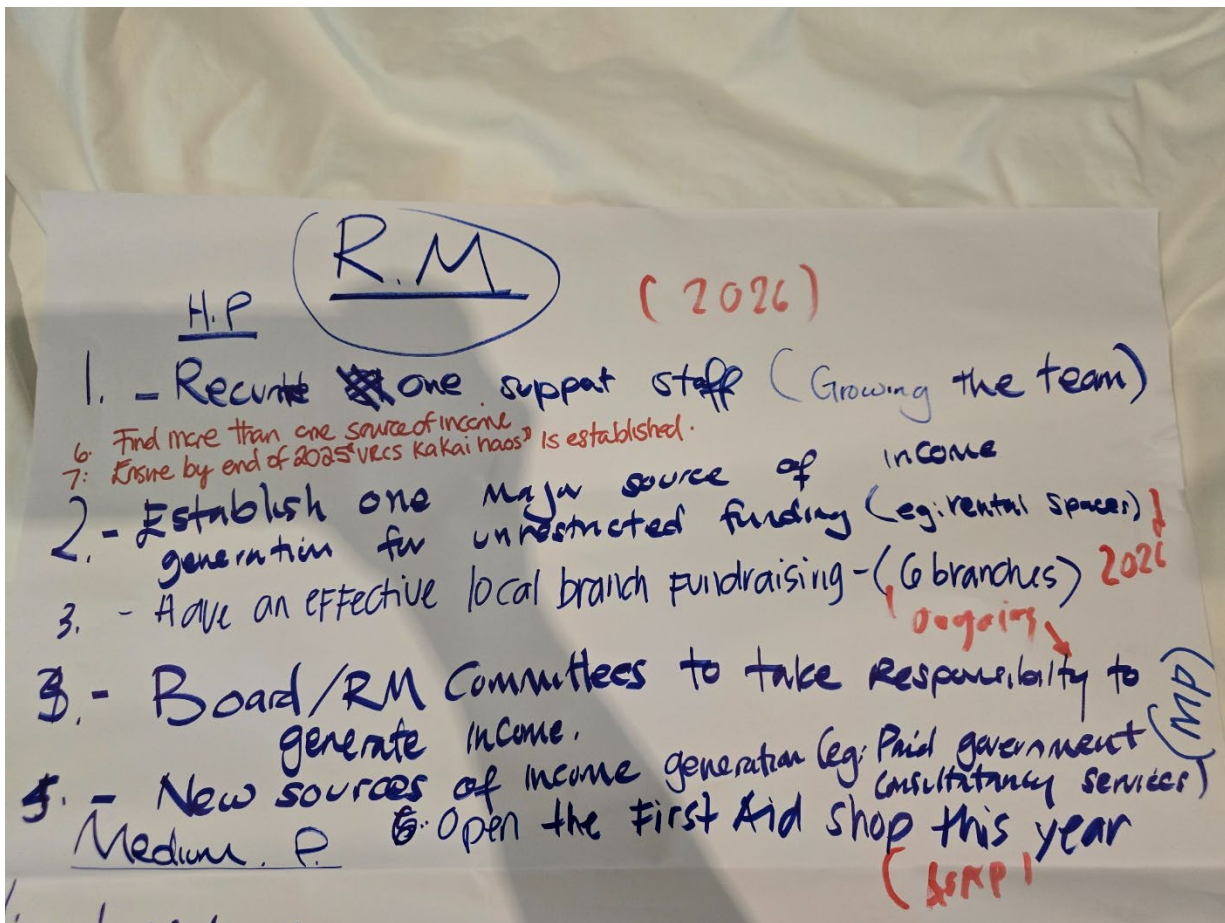 R.M
H.P
(2026)
1. - Recruit one support staff (Growing the team)
6. Find more than one source of income
7: Ensure by end of 2025 "VRCS Kakai haos" is established.
2. - Establish one major source of income
generation for unrestricted funding (eg: rental spaces)
2026
3. - Have an effective local branch fundraising - (6 branches)
ongoing
- Board/RM Committees to take Responsibility to
generate income.
(MP)
5. - New sources of income generation (eg: Paid government
consultatancy services)
6. Open the First Aid shop this year
Medium. P.